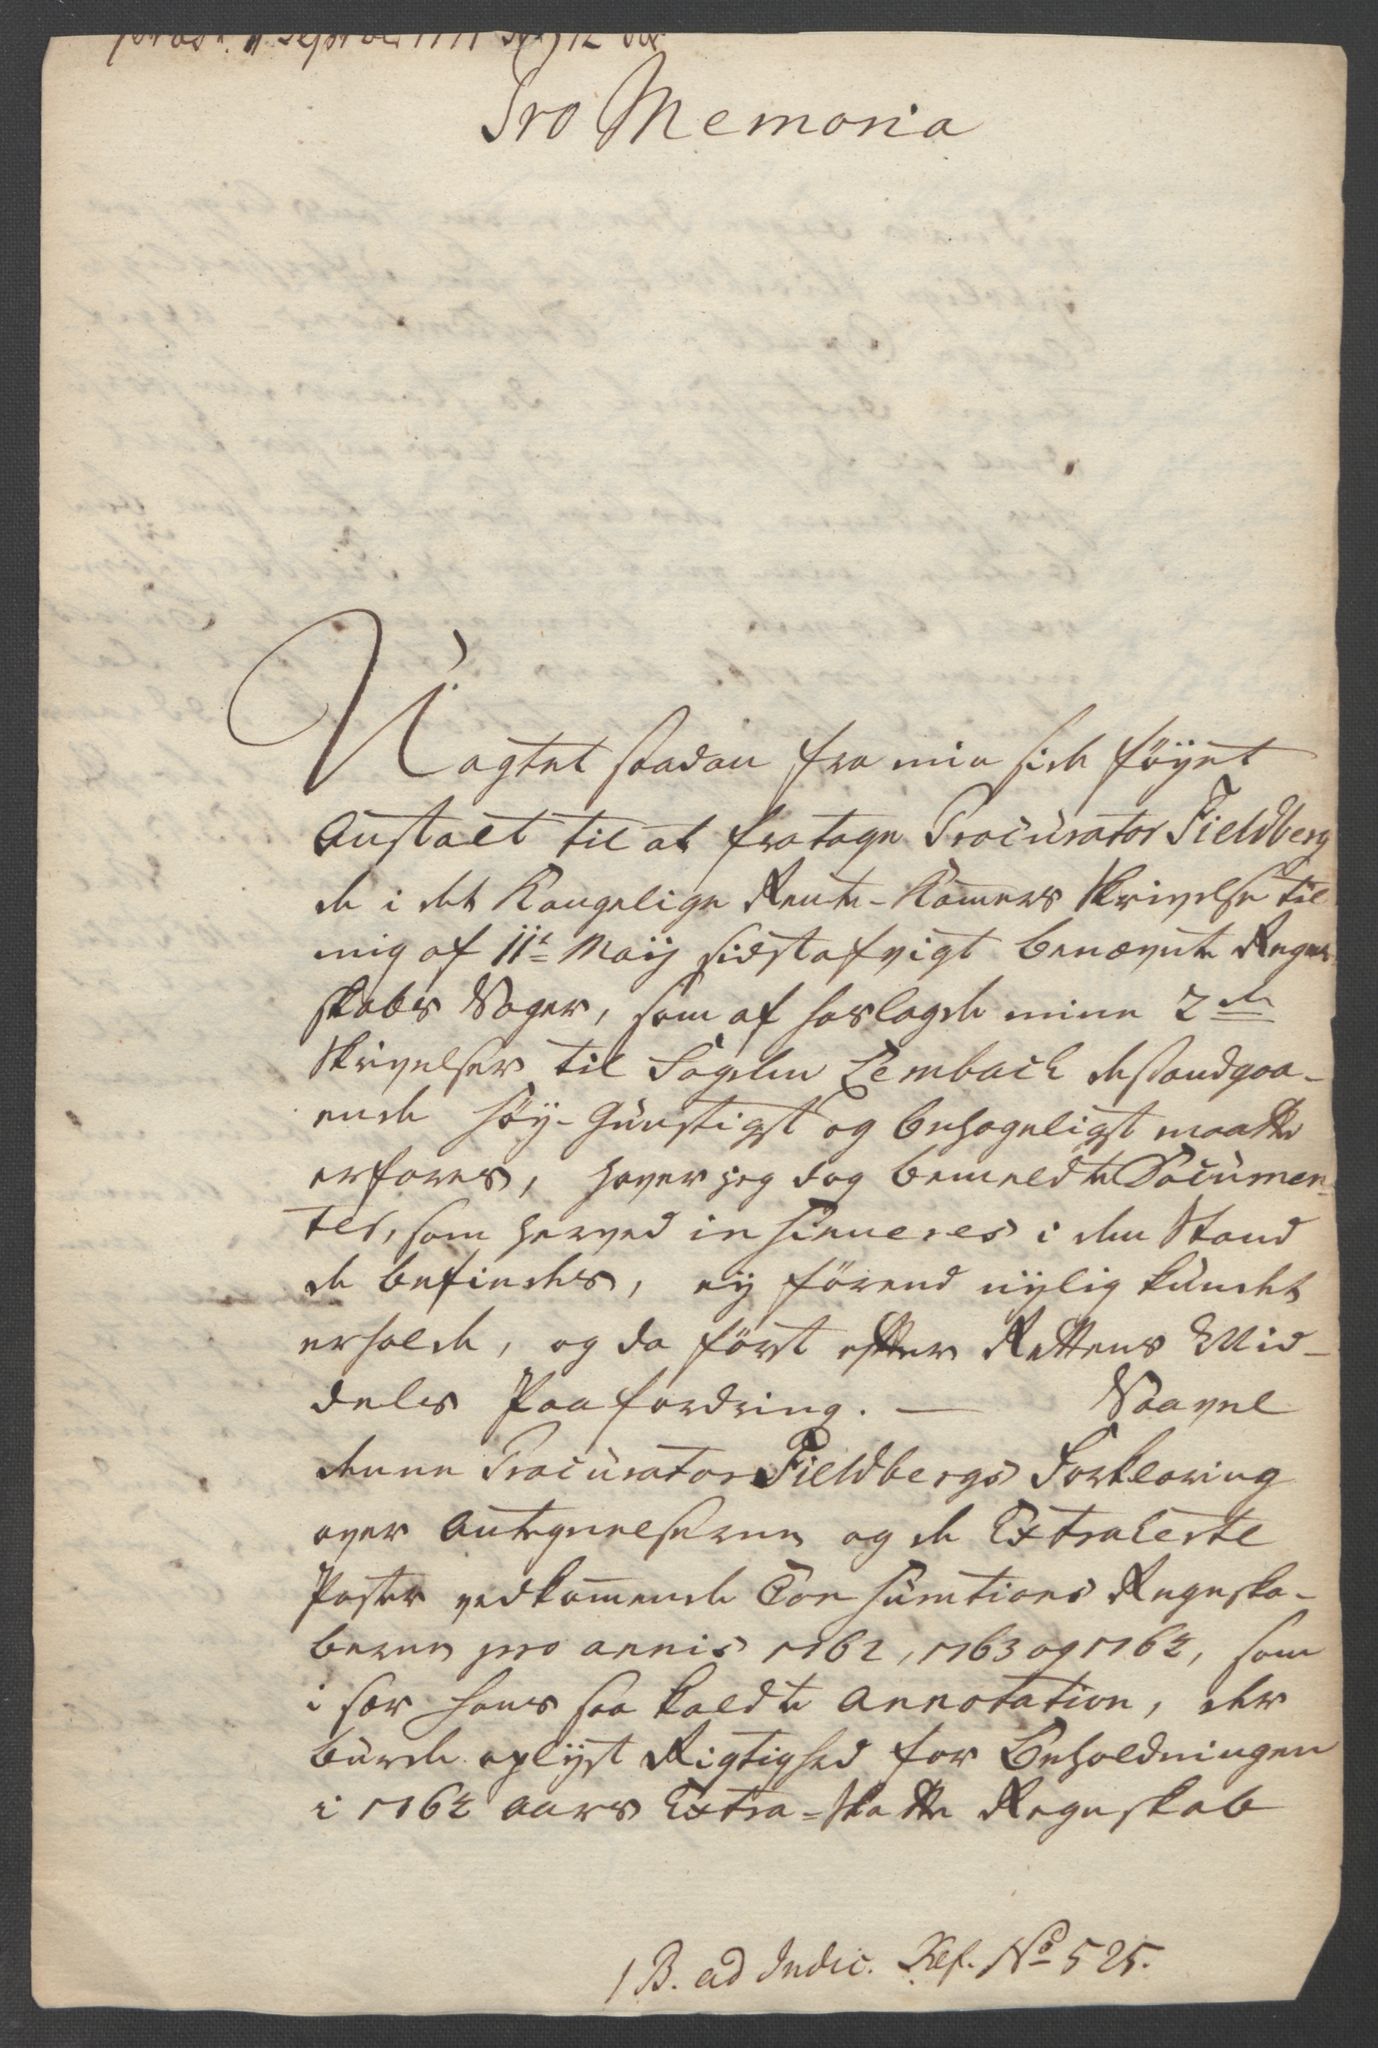 September 1771
Pro Memoria
Uagtet saadan fra min side föyet
Anstalt til at fratage Procurator Fieldberg
de i det Kongelige Rente-Kamers Skrivelse til
mig af 11te Maij sidstafvigt benævnte Regn-
skabs Sager, som af hoslagde mine 2de
Skrivelser til Fogden Lembach desangaa-
ende höy-Gunstigst og behageligst maatte
erfares, haver jeg dog bemeldte Documen-
ter, som herved insinueres i den Stand
de befindes, ey förend nylig kundet
erholde, og da först efter Rettens Mid-
dels Paafordring. — Saavel
denne Procurator Fieldbergs Forklaring
over Antegnelserne og de Extraherte
Poster vedkommende Consumtions Regnska-
berne pro annis 1762, 1763 og 1764, som
i sær hans saa kaldte Annotation, der
burde oplyst Rigtighed for Beholdningen
i 1764 aars Extra-Skatte Regnskab
1 B. ad Indic. Ref. No 525.